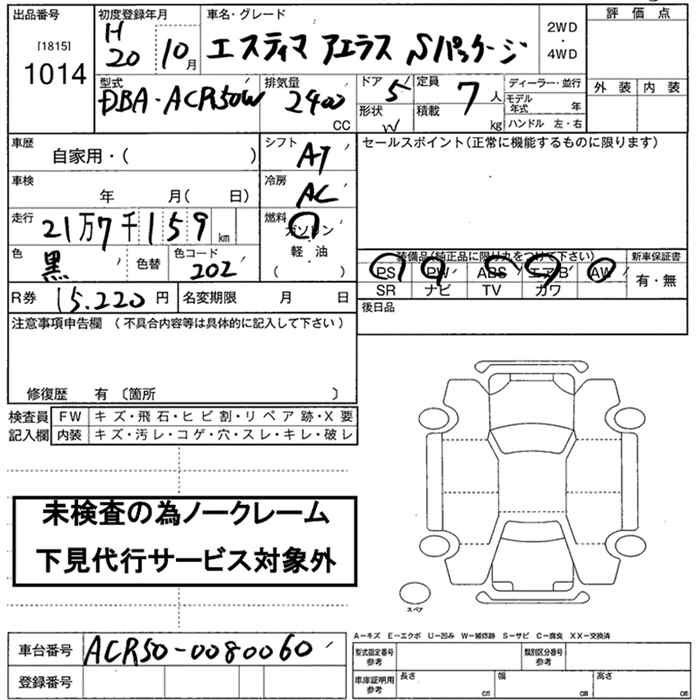 出品番号 初度登録年月 車名・グレード 評価点
[1815] H
1014 20 10月 エスティマ アエラス Sパッケージ 2WD・4WD
外装 内装
型式 排気量 ドア 定員 ディーラー・並行
DBA-ACR50W 2400 CC 5 7人 モデル年式 年
形状 W 積載 kg ハンドル 左・右
車歴 シフト セールスポイント(正常に機能するものに限ります)
自家用・( ) AT
車検 冷房
年 月( 日) AC
走行 燃料
21万7千159km ガソリン
軽油
( )
色 色コード
黒 色替 202
装備品(純正品に限り丸をつけて下さい) 新車保証書
PS PW ABS エアB AW 有・無
SR ナビ TV カワ
R券 15.220円 名変期限 月 日
後日品
注意事項申告欄(不具合内容等は具体的に記入して下さい)
修復歴 有〔箇所 〕
検査員 FW キズ・飛石・ヒビ割・リペア跡・X要
記入欄 内装 キズ・汚レ・コゲ・穴・スレ・キレ・破レ
未検査の為ノークレーム
下見代行サービス対象外
スペア
A-キズ E-エクボ U-凹み W-補修跡 S-サビ C-腐食 XX-交換済
車台番号 ACR50-0080060
型式指定番号 参考 類別区分番号 参考
登録番号
車庫証明用 参考 長さ cm 幅 cm 高さ cm